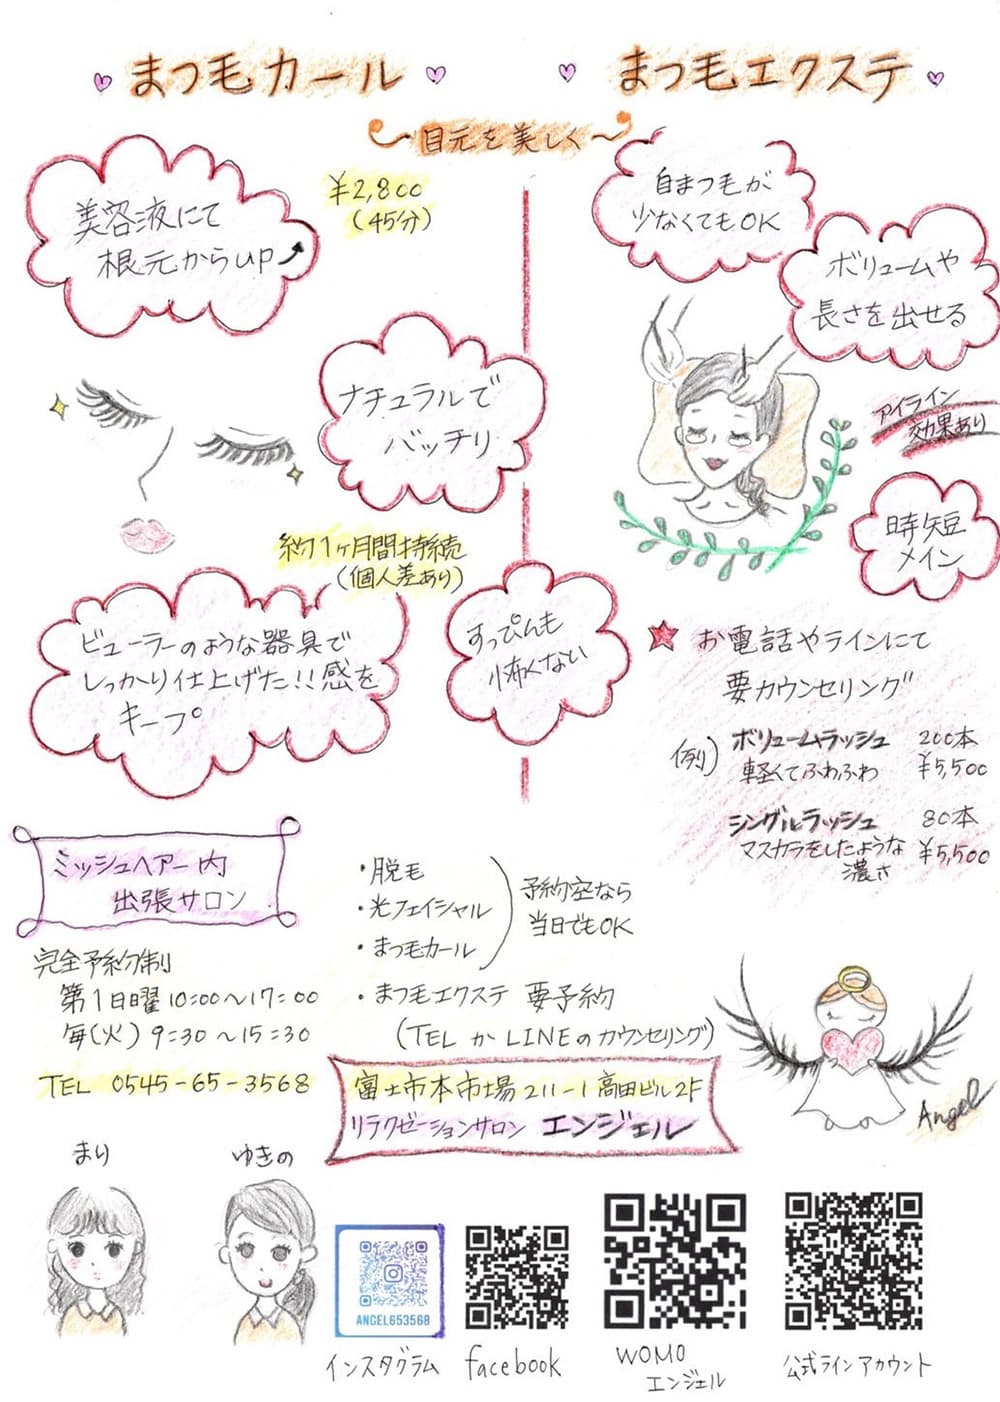 まつ毛カール
まつ毛エクステ
～目元を美しく～
美容液にて
根元からup
¥2,800
(45分)
ナチュラルで
バッチリ
約1ヶ月間持続
(個人差あり)
ビューラーのような器具で
しっかり仕上げた!!感を
キープ
すっぴんも
怖くない
自まつ毛が
少なくてもOK
ボリュームや
長さを出せる
アイライン
効果あり
時短
メイン
★お電話やラインにて
要カウンセリング
例) ボリュームラッシュ 200本
軽くてふわふわ ¥5,500
シングルラッシュ 80本
マスカラをしたような ¥5,500
濃さ
ミッシュヘアー内
出張サロン
完全予約制
第1日曜 10:00～17:00
毎(火) 9:30～15:30
TEL 0545-65-3568
・脱毛
・光フェイシャル
・まつ毛カール
予約空なら
当日でもOK
・まつ毛エクステ 要予約
(TELかLINEのカウンセリング)
富士市本市場211-1高田ビル2F
リラクゼーションサロン エンジェル
Angel
まり
ゆきの
ANGEL653568
インスタグラム
facebook
WOMO
エンジェル
公式ラインアカウント